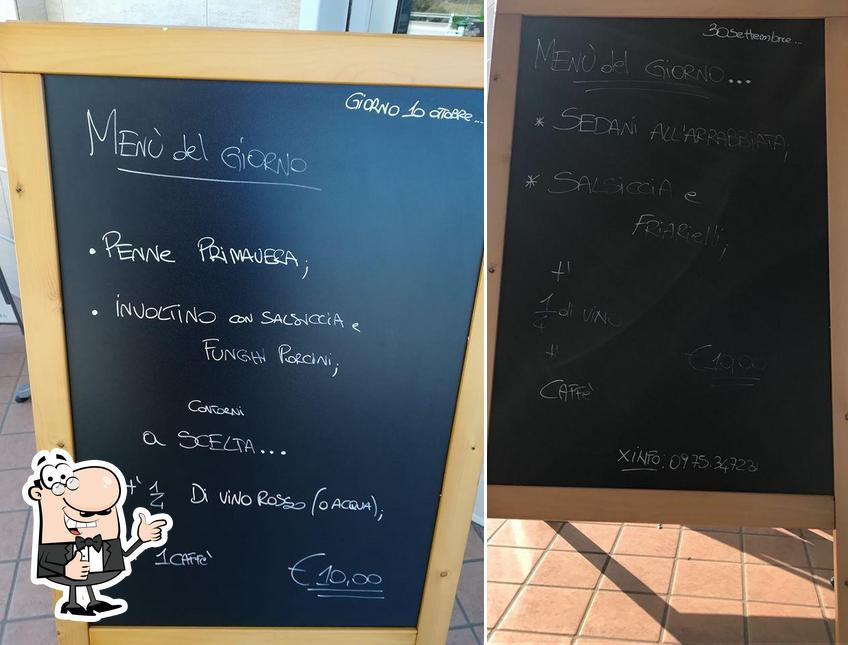 GIORNO 10 OTTOBRE...
MENÙ del GIORNO
• PENNE PRIMAVERA;
• INVOLTINO CON SALSICCIA e
FUNGHI PORCINI;
CONTORNI
a SCELTA...
+ 1/4 DI VINO ROSSO (O ACQUA);
1 CAFFE'
€ 10,00
30 Settembre...
MENÙ del GIORNO...
* SEDANI ALL'ARRABBIATA;
* SALSICCIA e
FRIARIELLI;
+
1/4 di VINO
+
€ 10,00
CAFFE'
X INFO: 0975.347231